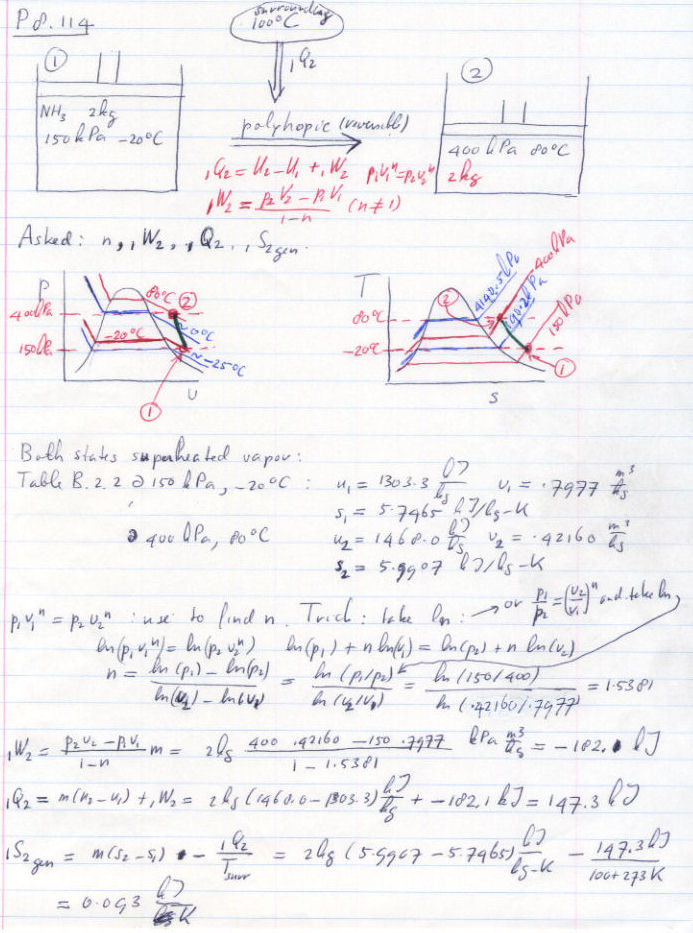 P8.114
surrounding
100°C
①
₁Q₂
②
NH₃ 2kg
150 kPa -20°C
polyphopic (reversible)
400 kPa 80°C
2kg
₁Q₂ = U₂-U₁ + ₁W₂ p₁v₁ⁿ=p₂v₂ⁿ
₁W₂ = (p₂V₂ - p₁V₁)/(1-n) (n≠1)
Asked: n, ₁W₂, ₁Q₂, ₁S₂gen.
P
400kPa
150kPa
80°C
②
-20°C
~0°C
~-25°C
①
υ
T
80°C
-20°C
②
4140.5kPa
400kPa
190.2kPa
150kPa
①
s
Both states superheated vapor:
Table B.2.2 @ 150 kPa, -20°C : u₁ = 1303.3 kJ/kg v₁ = .7977 m³/kg
s₁ = 5.7465 kJ/kg-K
@ 400 kPa, 80°C u₂ = 1468.0 kJ/kg v₂ = .42160 m³/kg
s₂ = 5.9907 kJ/kg-K
p₁v₁ⁿ = p₂v₂ⁿ : use to find n. Trick: take ln: → or p₁/p₂ = (v₂/v₁)ⁿ and take ln,
ln(p₁v₁ⁿ) = ln(p₂v₂ⁿ) ln(p₁) + n ln(v₁) = ln(p₂) + n ln(v₂)
n = (ln(p₁) - ln(p₂))/(ln(v₂) - ln(v₁)) = ln(p₁/p₂)/ln(v₂/v₁) = ln(150/400)/ln(.42160/.7977) = 1.5381
₁W₂ = (p₂v₂-p₁v₁)/(1-n) m = 2kg (400 .42160 - 150 .7977)/(1 - 1.5381) kPa m³/kg = -182.1 kJ
₁Q₂ = m(u₂-u₁) + ₁W₂ = 2kg (1468.0 - 1303.3) kJ/kg + -182.1 kJ = 147.3 kJ
₁S₂gen = m(s₂-s₁) - ₁Q₂/Tsurr = 2kg (5.9907 - 5.7465) kJ/kg-K - 147.3kJ/(100+273K)
= 0.093 kJ/K